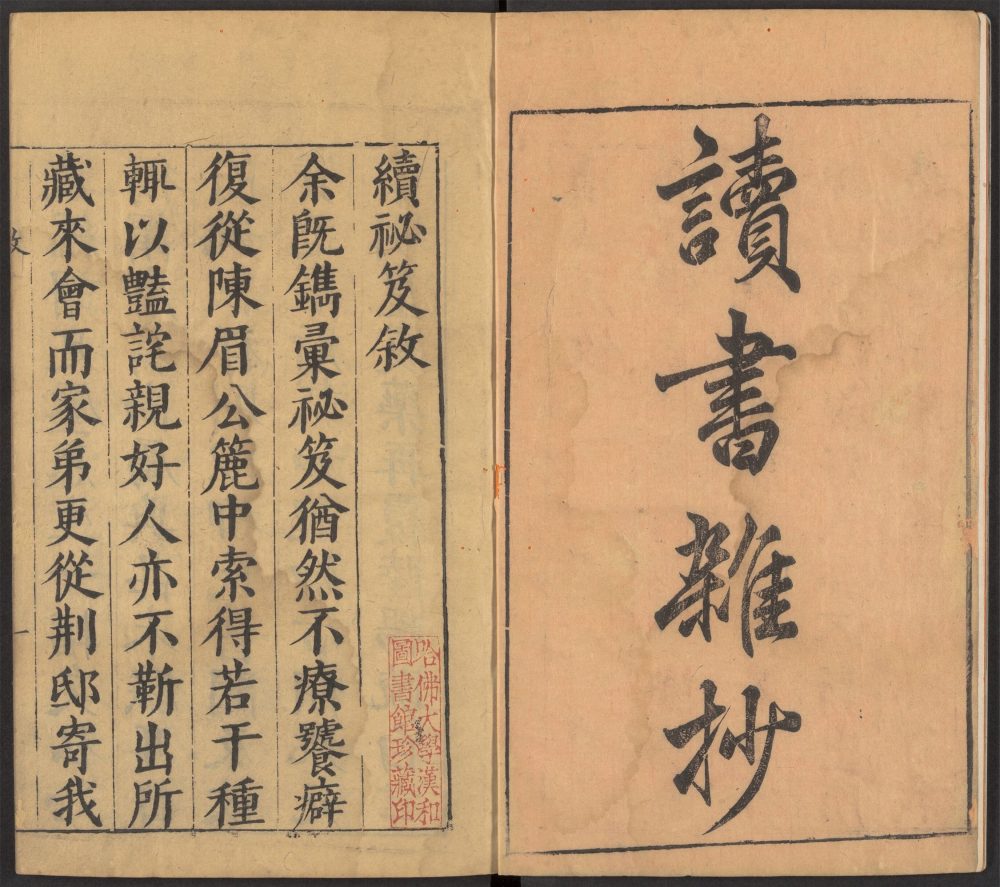 讀書雜抄
續祕笈敘
余旣鐫彙祕笈猶然不療饕癖
復從陳眉公簏中索得若干種
輒以豔詫親好人亦不靳出所
藏來會而家弟更從荆邸寄我
哈佛大學漢和
圖書館珍藏印
一